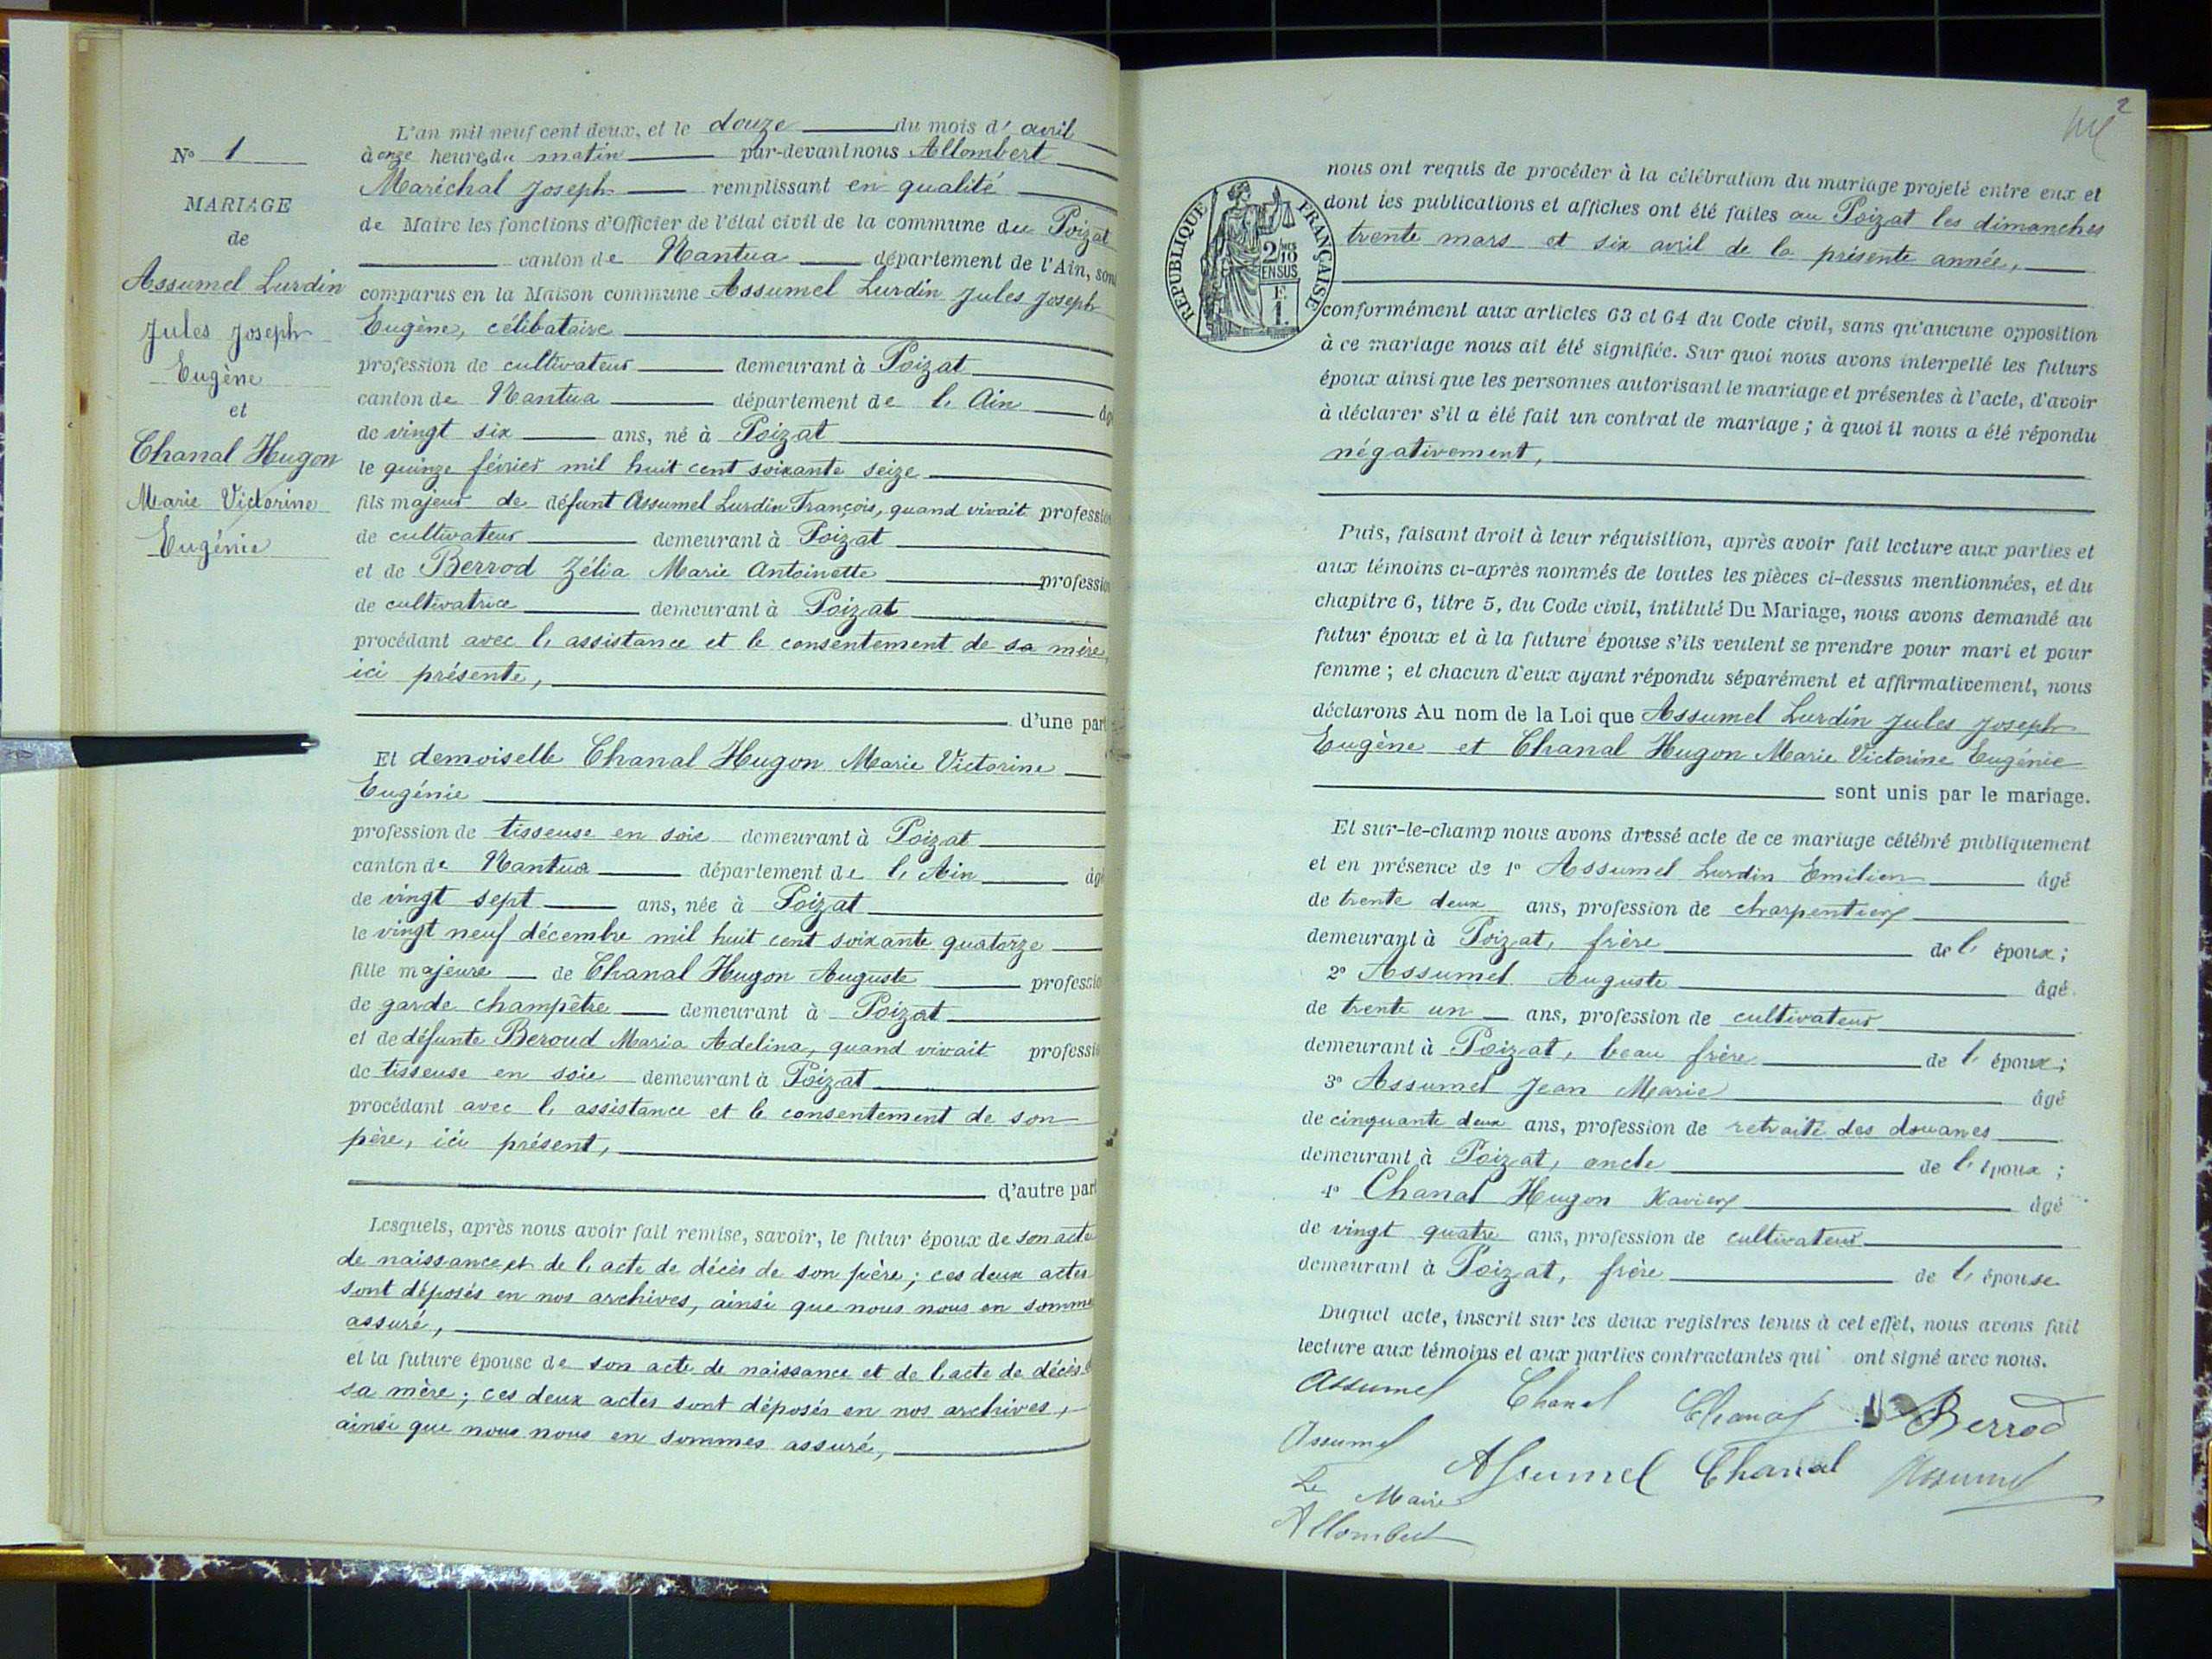 N° 1
MARIAGE
de
Assumel Lurdin
Jules Joseph
Eugène
et
Chanal Hugon
Marie Victorine
Eugénie
L'an mil neuf cent deux, et le douze du mois d' avril
à onze heures du matin par-devant nous Allombert
Maréchal Joseph remplissant en qualité
de Maire les fonctions d'Officier de l'état civil de la commune du Poizat
canton de Nantua département de l'Ain, sont
comparus en la Maison commune Assumel Lurdin Jules Joseph
Eugène, célibataire
profession de cultivateur demeurant à Poizat
canton de Nantua département de l'Ain âgé
de vingt six ans, né à Poizat
le quinze février mil huit cent soixante seize
fils majeur de défunt Assumel Lurdin François, quand vivait profession
de cultivateur demeurant à Poizat
et de Berrod Zélia Marie Antoinette profession
de cultivatrice demeurant à Poizat
procédant avec l'assistance et le consentement de sa mère,
ici présente,
d'une part
Et demoiselle Chanal Hugon Marie Victorine
Eugénie
profession de tisseuse en soie demeurant à Poizat
canton de Nantua département de l'Ain âgé
de vingt sept ans, née à Poizat
le vingt neuf décembre mil huit cent soixante quatorze
fille majeure de Chanal Hugon Auguste profession
de garde champêtre demeurant à Poizat
et de défunte Beroud Maria Adelina, quand vivait profession
de tisseuse en soie demeurant à Poizat
procédant avec l'assistance et le consentement de son
père, ici présent,
d'autre part
Lesquels, après nous avoir fait remise, savoir, le futur époux de son acte
de naissance et de l'acte de décès de son père; ces deux actes
sont déposés en nos archives, ainsi que nous nous en sommes
assuré,
et la future épouse de son acte de naissance et de l'acte de décès de
sa mère; ces deux actes sont déposés en nos archives,
ainsi que nous nous en sommes assuré,
2
RÉPUBLIQUE FRANÇAISE
2/10
EN SUS
F.
1.
nous ont requis de procéder à la célébration du mariage projeté entre eux et
dont les publications et affiches ont été faites au Poizat les dimanches
trente mars et six avril de la présente année,
conformément aux articles 63 et 64 du Code civil, sans qu'aucune opposition
à ce mariage nous ait été signifiée. Sur quoi nous avons interpellé les futurs
époux ainsi que les personnes autorisant le mariage et présentes à l'acte, d'avoir
à déclarer s'il a été fait un contrat de mariage; à quoi il nous a été répondu
négativement,
Puis, faisant droit à leur réquisition, après avoir fait lecture aux parties et
aux témoins ci-après nommés de toutes les pièces ci-dessus mentionnées, et du
chapitre 6, titre 5, du Code civil, intitulé Du Mariage, nous avons demandé au
futur époux et à la future épouse s'ils veulent se prendre pour mari et pour
femme; et chacun d'eux ayant répondu séparément et affirmativement, nous
déclarons Au nom de la Loi que Assumel Lurdin Jules Joseph
Eugène et Chanal Hugon Marie Victorine Eugénie
sont unis par le mariage.
Et sur-le-champ nous avons dressé acte de ce mariage célébré publiquement
et en présence de 1° Assumel Lurdin Emilien âgé
de trente deux ans, profession de charpentier
demeurant à Poizat, frère de l'époux;
2° Assumel Auguste âgé
de trente un ans, profession de cultivateur
demeurant à Poizat, beau frère de l'époux;
3° Assumel Jean Marie âgé
de cinquante deux ans, profession de retraité des douanes
demeurant à Poizat, oncle de l'époux;
4° Chanal Hugon Xavier âgé
de vingt quatre ans, profession de cultivateur
demeurant à Poizat, frère de l'épouse
Duquel acte, inscrit sur les deux registres tenus à cet effet, nous avons fait
lecture aux témoins et aux parties contractantes qui ont signé avec nous.
Assumel Chanal Chanal Berrod
Assumel Assumel Chanal Assumel
Le Maire
Allombert